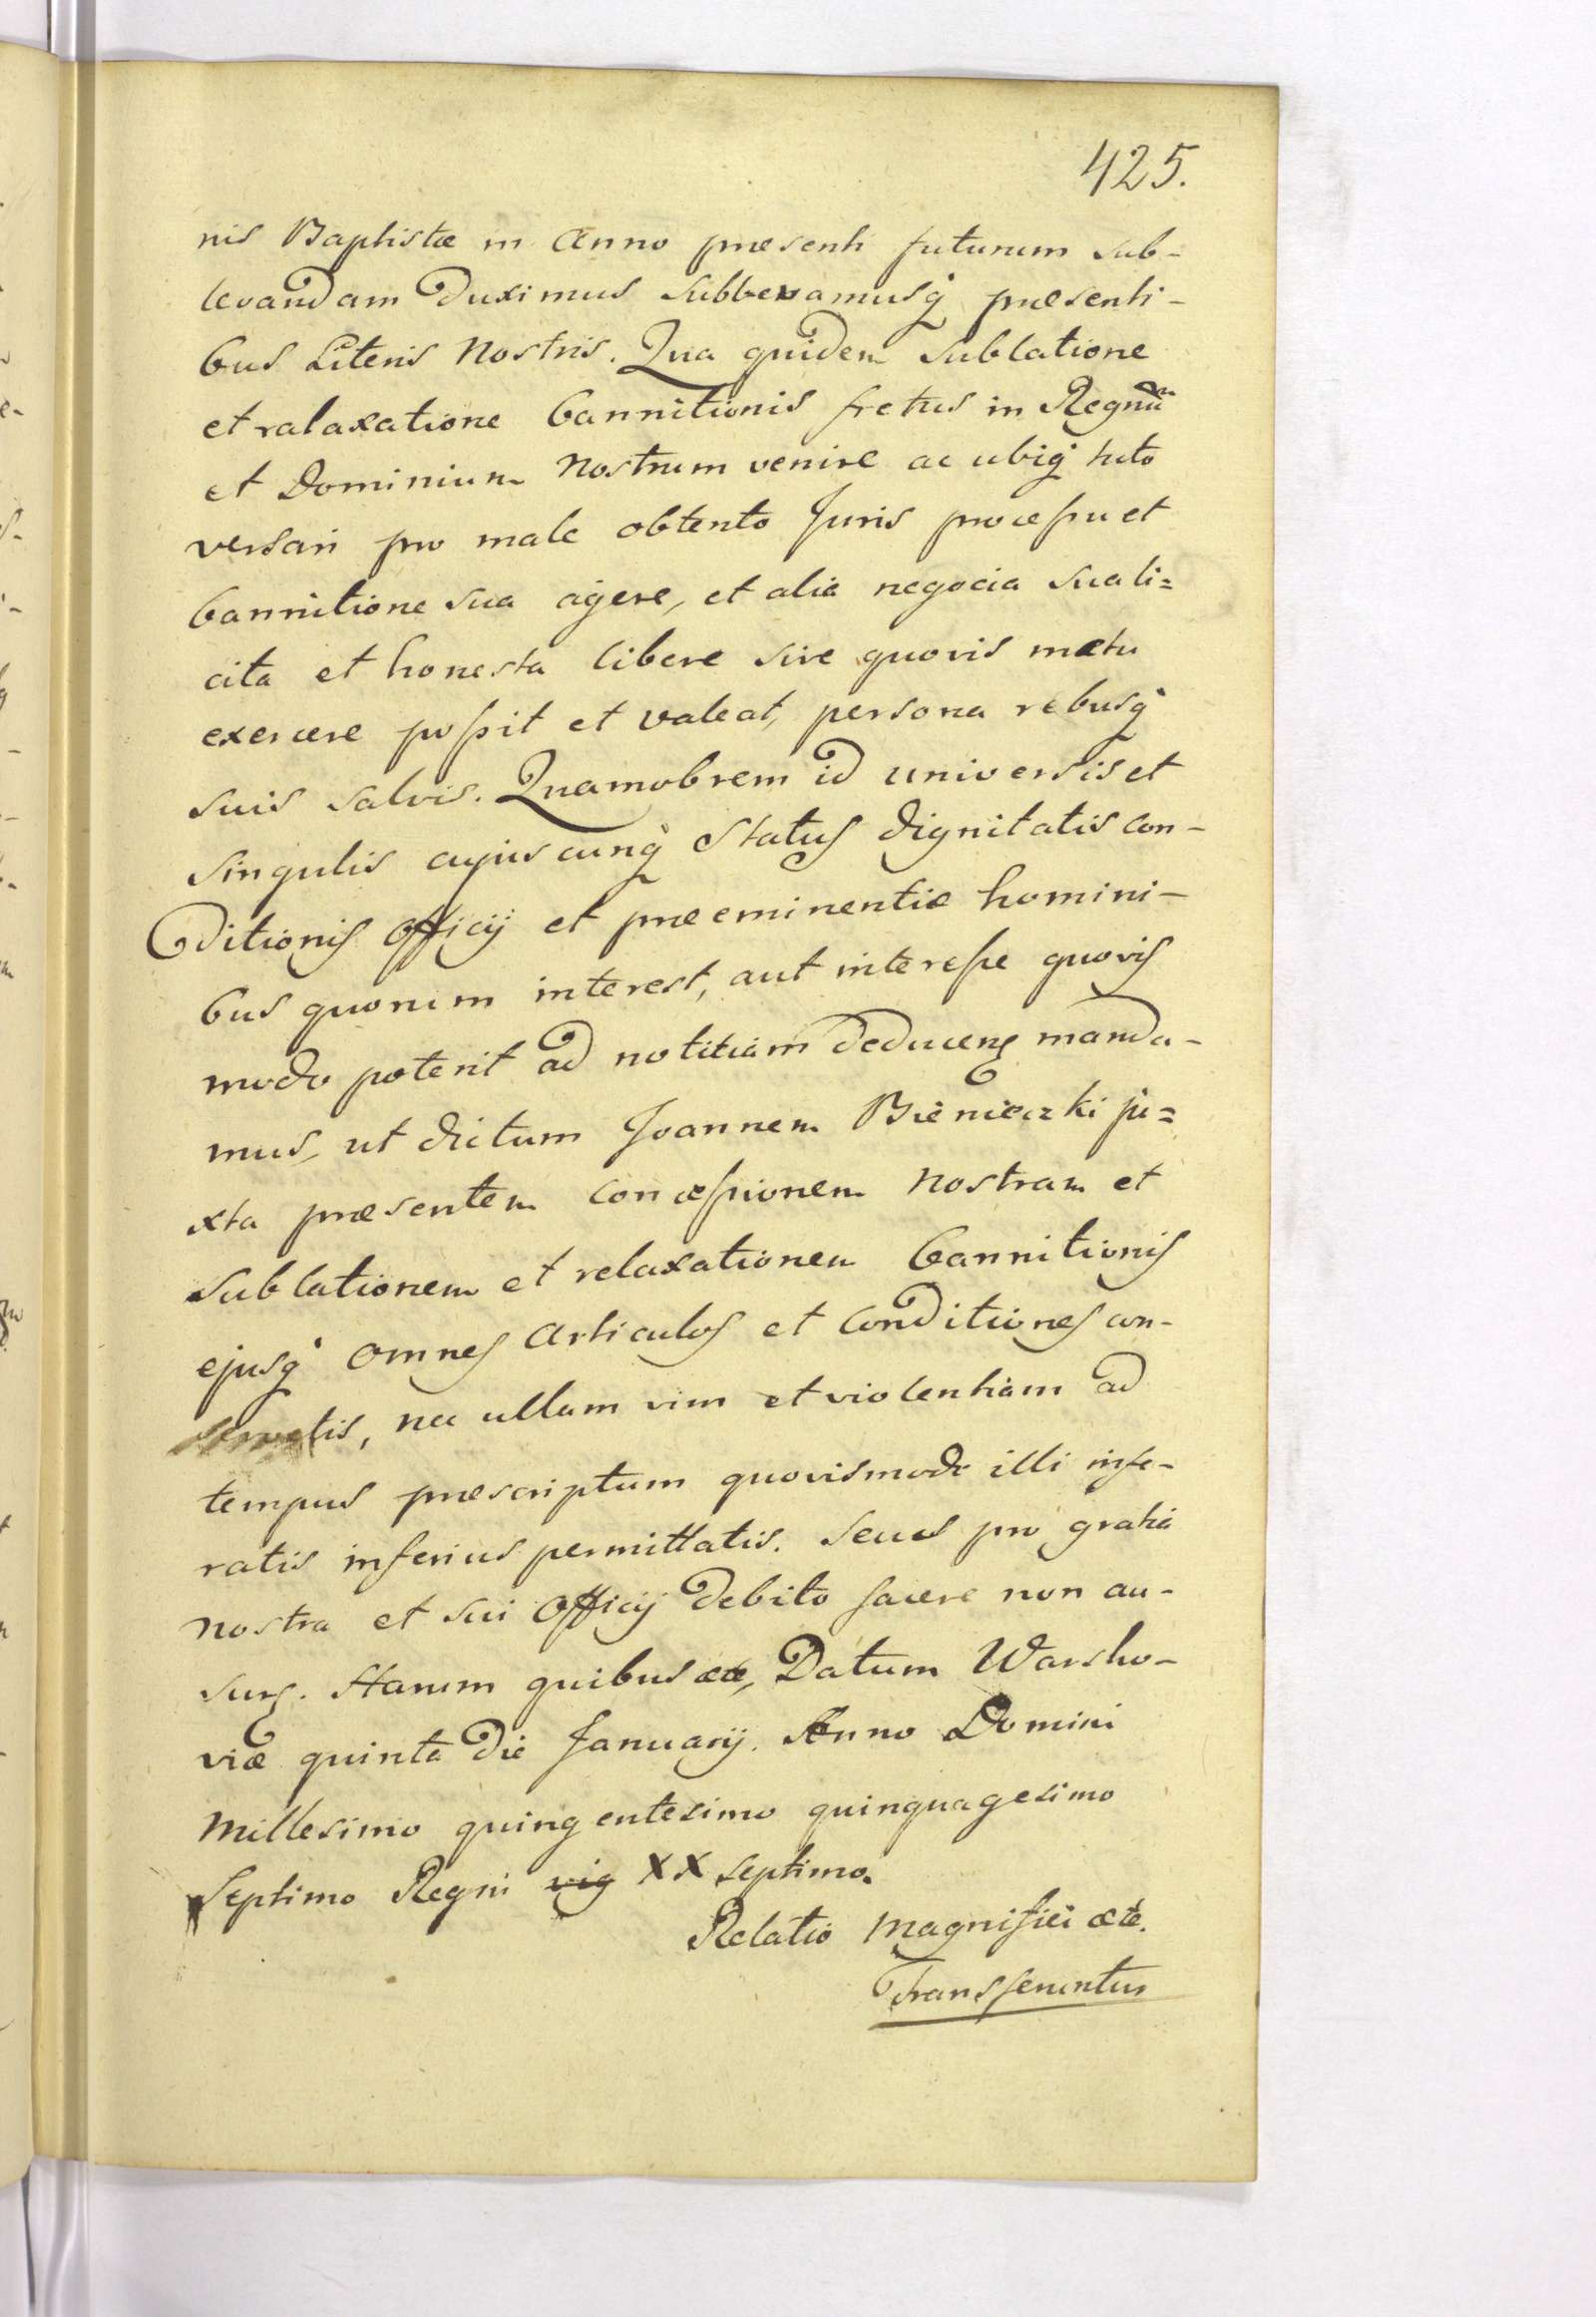 425.
nis Baptistæ in Anno præsenti futurum sub-
levandam Duximus subbevamusq præsenti-
bus Literis Nostris. Qua quidem sublatione
et ralaxatione bannitionis fretus in Regnum
et Dominium Nostrum venire ac ubiq tuto
versari pro male obtento Juris processu et
bannitione sua agere, et alia negocia sua li=
cita et honesta libere sive quovis metu
exercere possit et valeat, persona rebusq
suis salvis. Quamobrem id universis et
singulis cujuscunq Status dignitatis con-
ditionis Officij et præeminentiæ homini-
bus quorum interest, aut interesse quovis
modo poterit ad notitiam deducens manda-
mus, ut dictum Joannem Bienieczki ju=
xta præsentem concessionem nostram et
sublationem et relaxationem bannitionis
ejusq omnes Articulos et Conditiones con-
servetis, nec ullam vim et violentiam ad
tempus præscriptum quovismodo illi infe-
ratis inferius permittatis. Secus pro gratia
nostra et sui Officij debito facere non au-
surs. Harum quibus etc, Datum Warsho-
viæ quinta Die Januarij. Anno Domini
Millesimo quingentesimo quinquagesimo
Septimo Regni vig XX septimo.
Relatio Magnifici etc.
Transferuntur